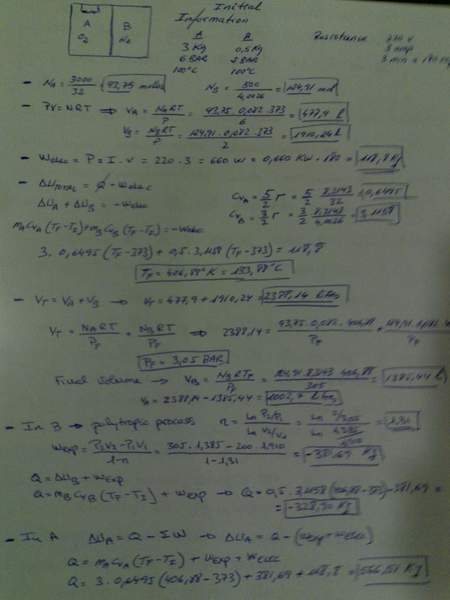 Initial
Information
A
B
A B
O₂ He
3 Kg 0,5 Kg
6 BAR 2 BAR
100°C 100°C
Resistance
220 V
3 Amp
3 min = 180 seg
- N_A = 3000/32 = 93,75 moles N_B = 500/4,0026 = 124,91 mol
- PV = NRT ⇒ V_A = N_A RT/P = 93,75 · 0,082 · 373/6 = 477,9 l
V_B = N_B RT/P = 124,91 · 0,082 · 373/2 = 1910,24 l
- W elec = P = I · V = 220 · 3 = 660 W = 0,660 KW · 180 = 118,8 KJ
- ΔU TOTAL = Q - W elec
C_VA = 5/2 r = 5/2 8,3143/32 = 0,6495
ΔU_A + ΔU_B = -W elec
C_VB = 3/2 r = 3/2 8,3143/4,0026 = 3,1158
m_A C_VA (T_F - T_I) + m_B C_VB (T_F - T_I) = -W elec
3 · 0,6495 (T_F - 373) + 0,5 · 3,1158 (T_F - 373) = 118,8
T_F = 406,88°K = 133,88°C
- V_T = V_A + V_B → V_T = 477,9 + 1910,24 = 2388,14 litros
V_T = N_A RT/P_F + N_B RT/P_F ⇒ 2388,14 = 93,75 · 0,082 · 406,88/P_F + 124,91 · 0,082 · 4
P_F = 3,05 BAR
Final Volume → V_B = N_B RT_F/P_F = 124,91 · 8,3143 · 406,88/305 = 1385,44 l
V_A = 2388,14 - 1385,44 = 1002,7 litros
- In B → polytropic process n = Ln P₂/P₁/Ln V₂/V₁ = = 1,31
W exp = P₂V₂ - P₁V₁/1-n = 305 · 1,385 - 200 · 1,910/1 - 1,31 = -381,69 KJ
Q = ΔU_B + W exp
Q = m_B C_VB (T_F - T_I) + W exp → Q = 0,5 · 3,1158 (406,88 - 373) - 381,69 =
= -328,90 KJ
- In A ΔU_A = Q - ΣW → ΔU_A = Q - (W exp + W elec)
Q = m_A C_VA (T_F - T_I) + W exp + W elec
Q = 3 · 0,6495 (406,88 - 373) + 381,69 + 118,8 = 566,51 KJ